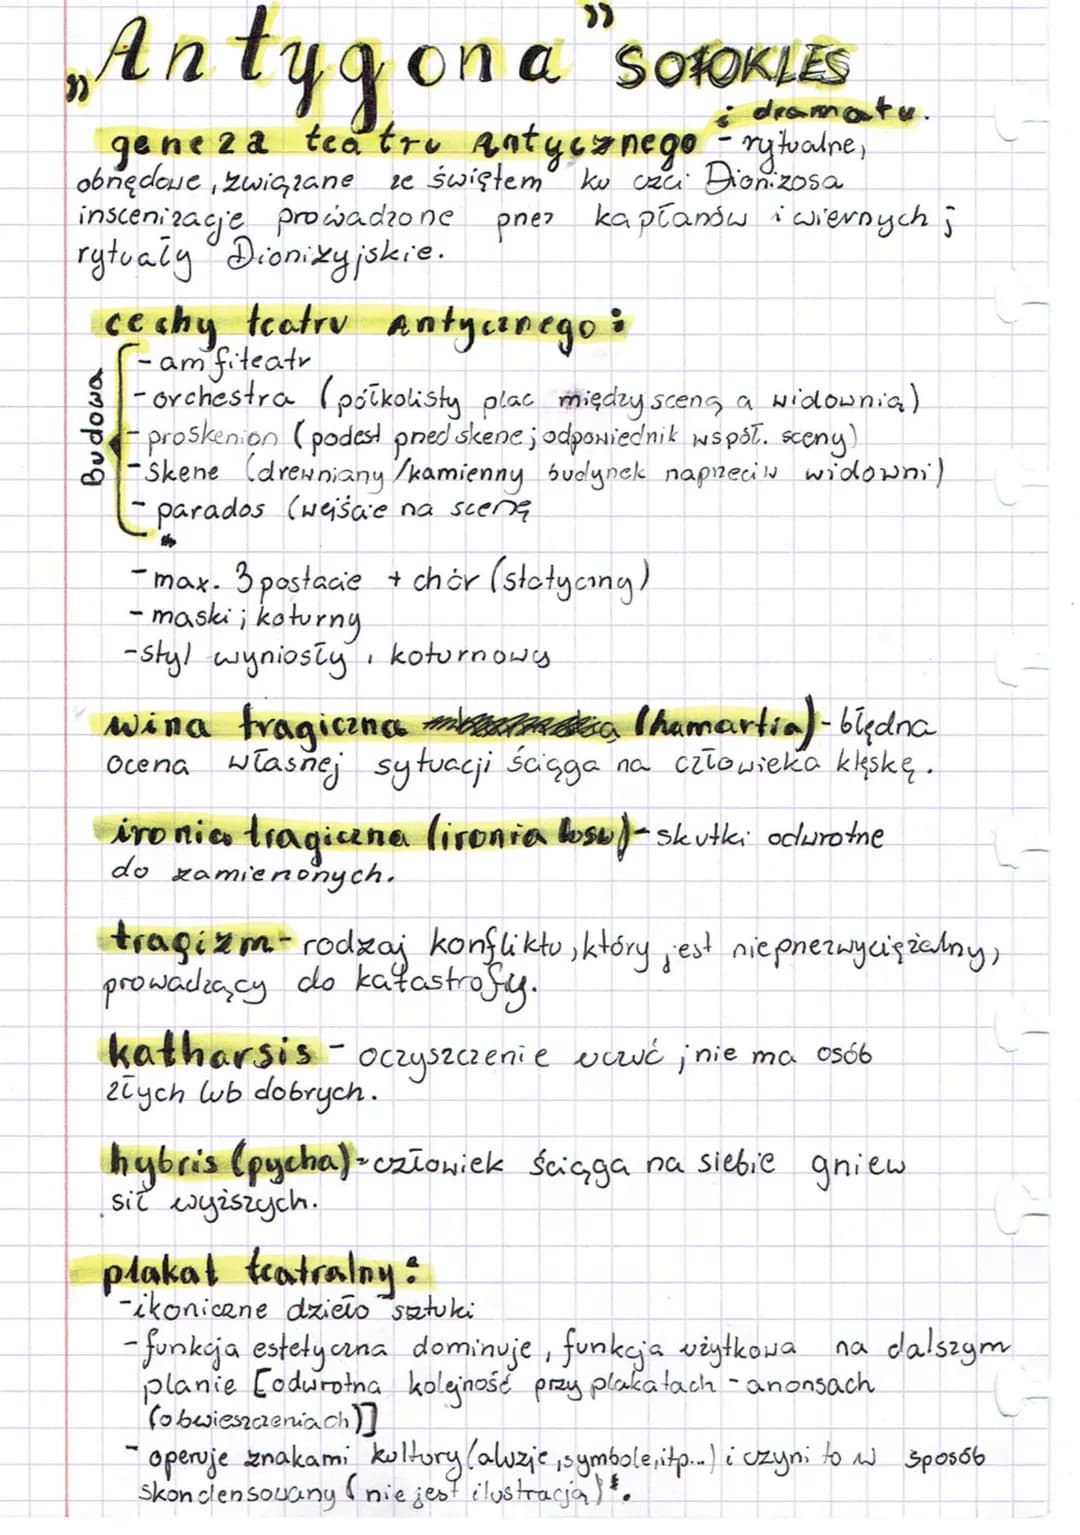 „Antygona” SOFOKLES
geneza teatru antycznego i dramatu. - rytualne,
obrzędowe, związane ze świętem ku czci Dionizosa
inscenizacje prowadzone przez kapłanów i wiernych;
rytuały Dionizyjskie.
cechy teatru Antycznego:
Budowa
- amfiteatr
- orchestra (półkolisty plac między sceną a widownią)
- proskenion (podest przed skene; odpowiednik współ. sceny)
- skene (drewniany/kamienny budynek naprzeciw widowni)
- parados (wejście na scenę
- max. 3 postacie + chór (statyczny)
- maski; koturny
- styl wyniosły, koturnowy
wina tragiczna (hamartia) - błędna
ocena własnej sytuacji ściąga na człowieka klęskę.
ironia tragiczna (ironia losu) - skutki odwrotne
do zamierzonych.
tragizm - rodzaj konfliktu, który jest nieprzezwyciężalny,
prowadzący do katastrofy.
katharsis - oczyszczenie uczuć; nie ma osób
złych lub dobrych.
hybris (pycha) - człowiek ściąga na siebie gniew
sił wyższych.
plakat teatralny:
- ikoniczne dzieło sztuki
- funkcja estetyczna dominuje, funkcja użytkowa na dalszym
planie [odwrotna kolejność przy plakatach - anonsach
(obwieszczeniach)]
- operuje znakami kultury (aluzje, symbole, itp...) i czyni to w sposób
skondensowany (nie jest ilustracją).